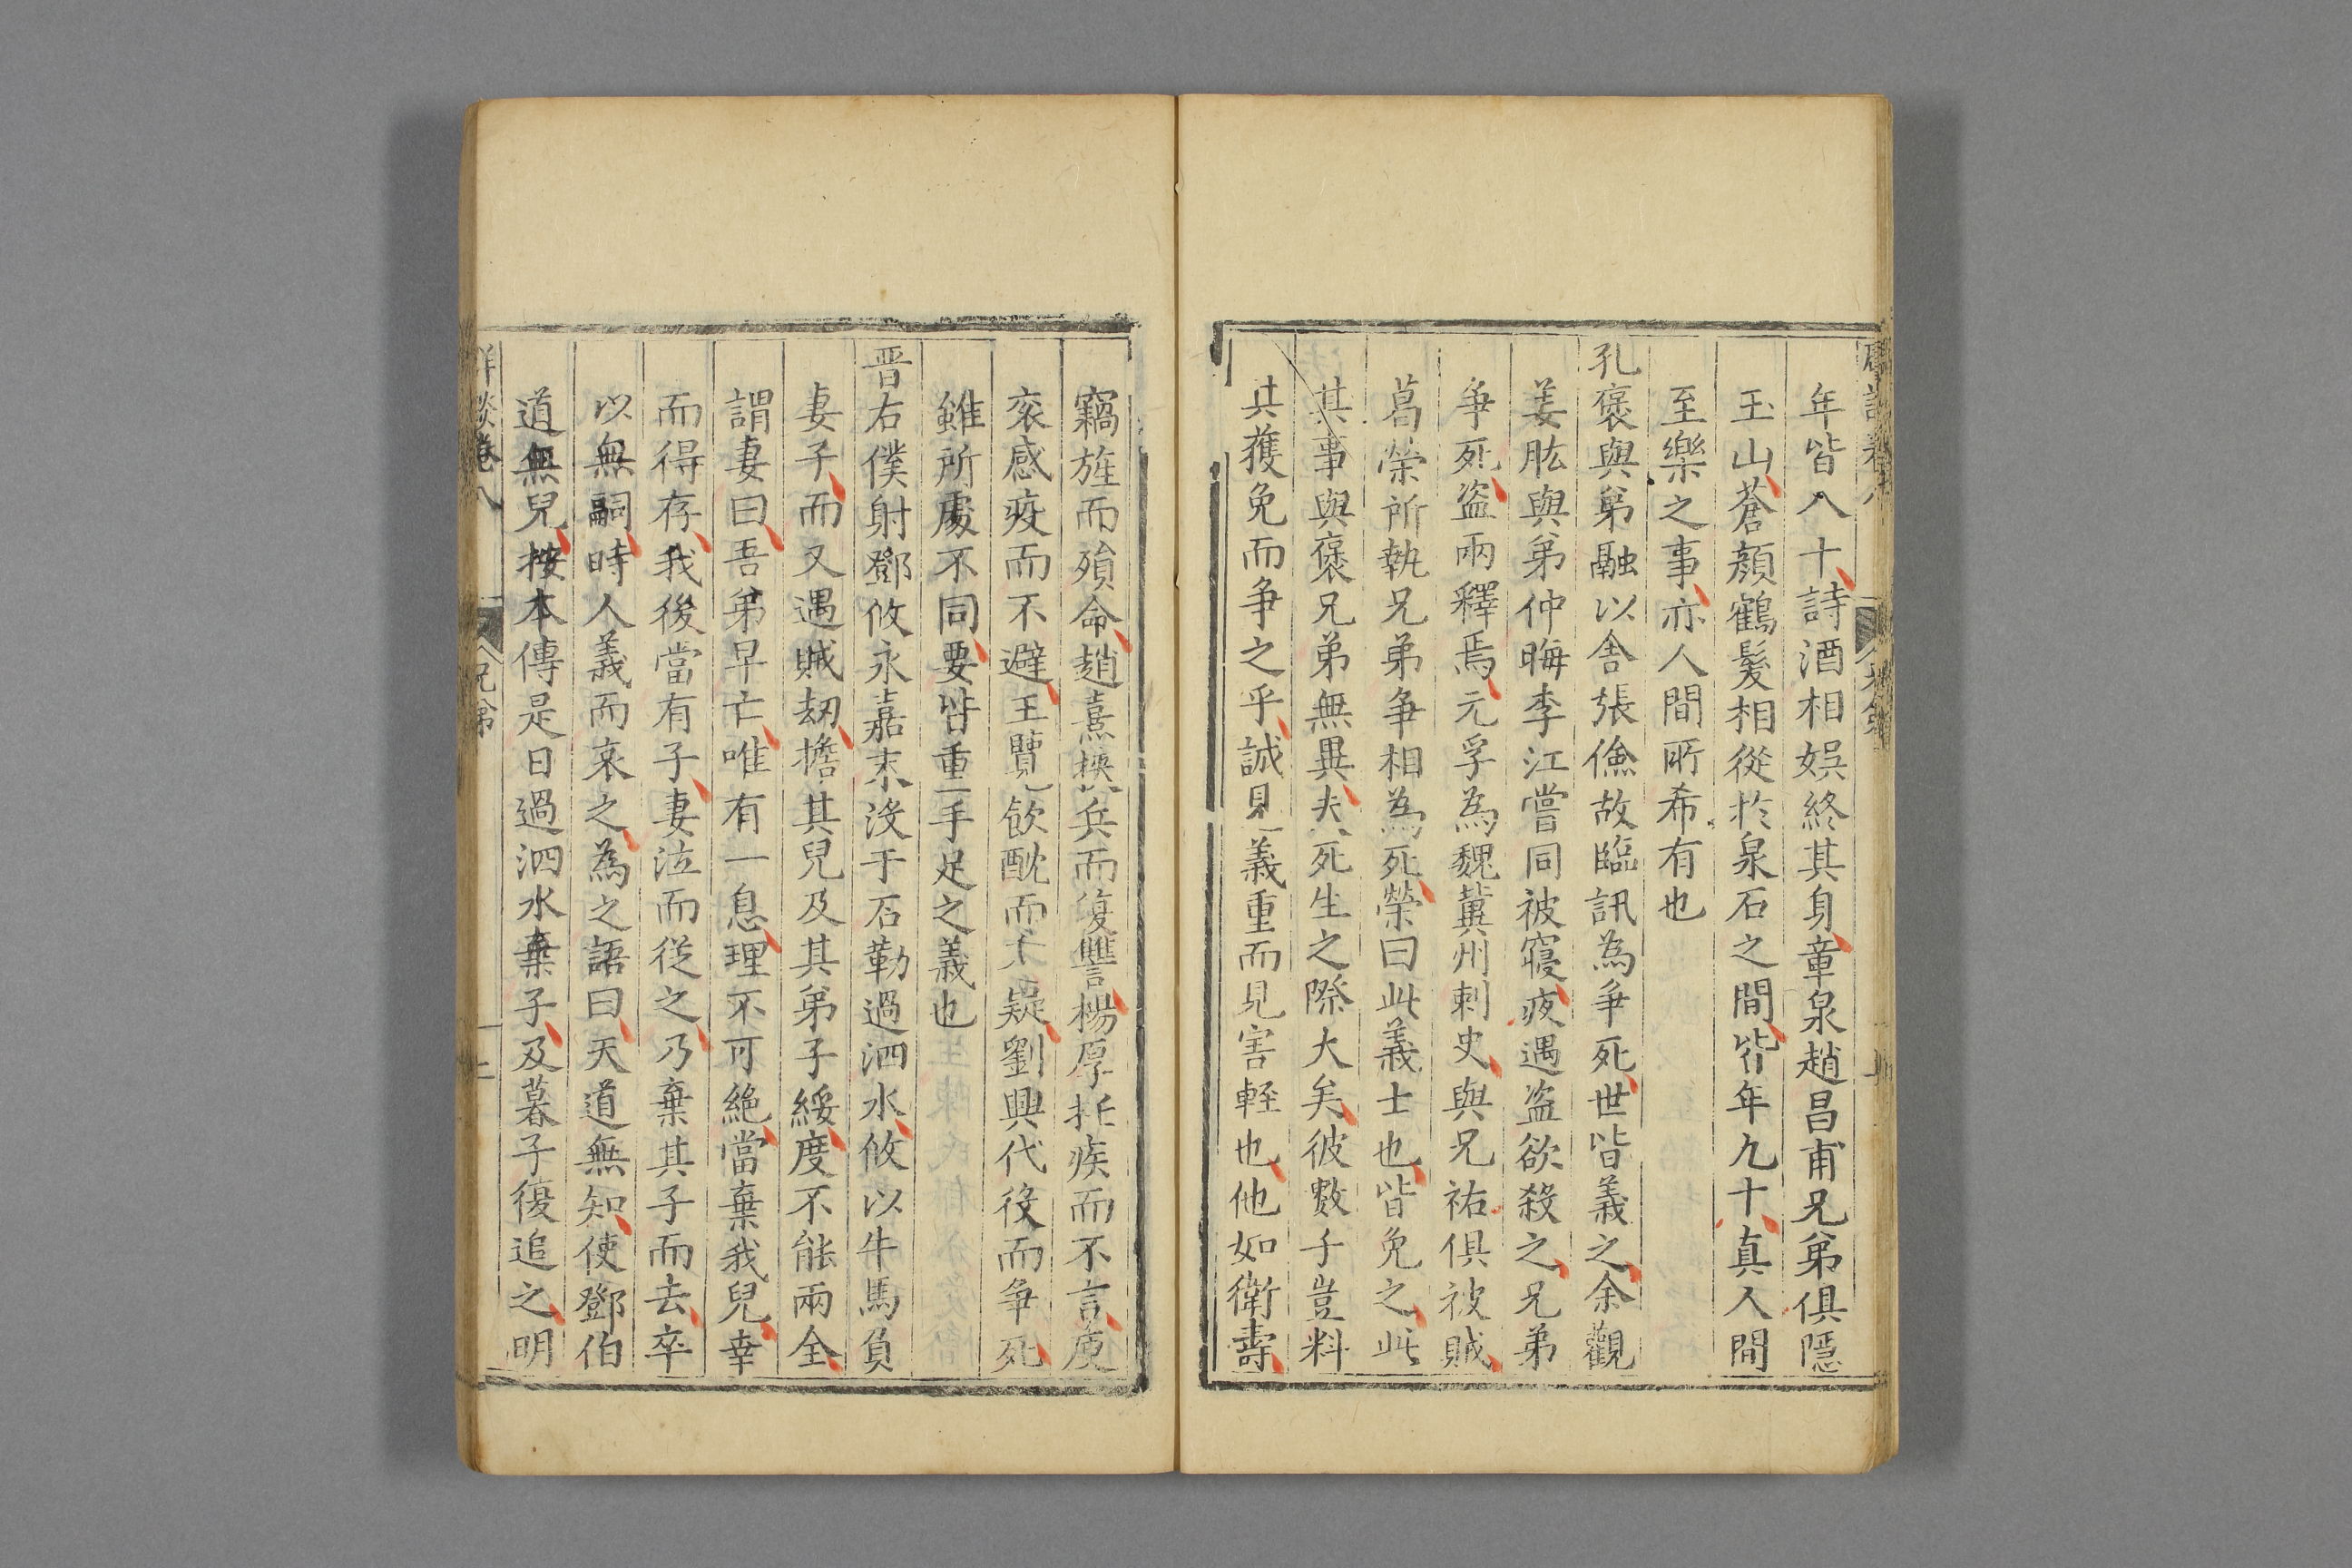 年皆八十詩酒相娯終其身章泉趙昌甫兄弟俱隱
玉山蒼顔鶴髮相從於泉石之間皆年九十真人間
至樂之事亦人間所希有也
孔褒與弟融以舎張儉故臨訊為爭死世皆義之余觀
姜肱與弟仲晦李江嘗同被寢夜遇盗欲殺之兄弟
爭死盗兩釋焉元孚為魏冀州刺史與兄祐俱被賊
葛榮所執兄弟爭相為死榮曰此義士也皆免之此
其事與褒兄弟無異夫死生之際大矣彼數子豈料
其獲免而爭之乎誠見義重而見害輕也他如衛壽
竊旌而殞命趙熹挾兵而復讐楊厚托疾而不言庾
衮感疫而不避王覽飲酖而不疑劉興代役而爭死
雖所處不同要皆重手足之義也
晋右僕射鄧攸永嘉末没于石勒過泗水攸以牛馬負
妻子而又遇賊刼擔其兒及其弟子綏度不能兩全
謂妻曰吾弟早亡唯有一息理不可絶當棄我兒幸
而得存我後當有子妻泣而從之乃棄其子而去卒
以無嗣時人義而哀之為之語曰天道無知使鄧伯
道無兒按本傳是日過泗水棄子及暮子復追之明
卷八 兄弟